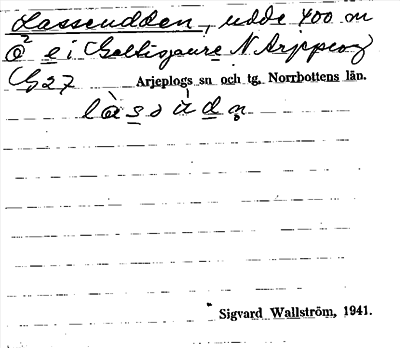 Lassudden, udde 400 m
O² e i Galtisjaure N Arjeplog
G 27
Arjeplogs sn och tg. Norrbottens län.
làsu̍dn̥
Sigvard Wallström, 1941.